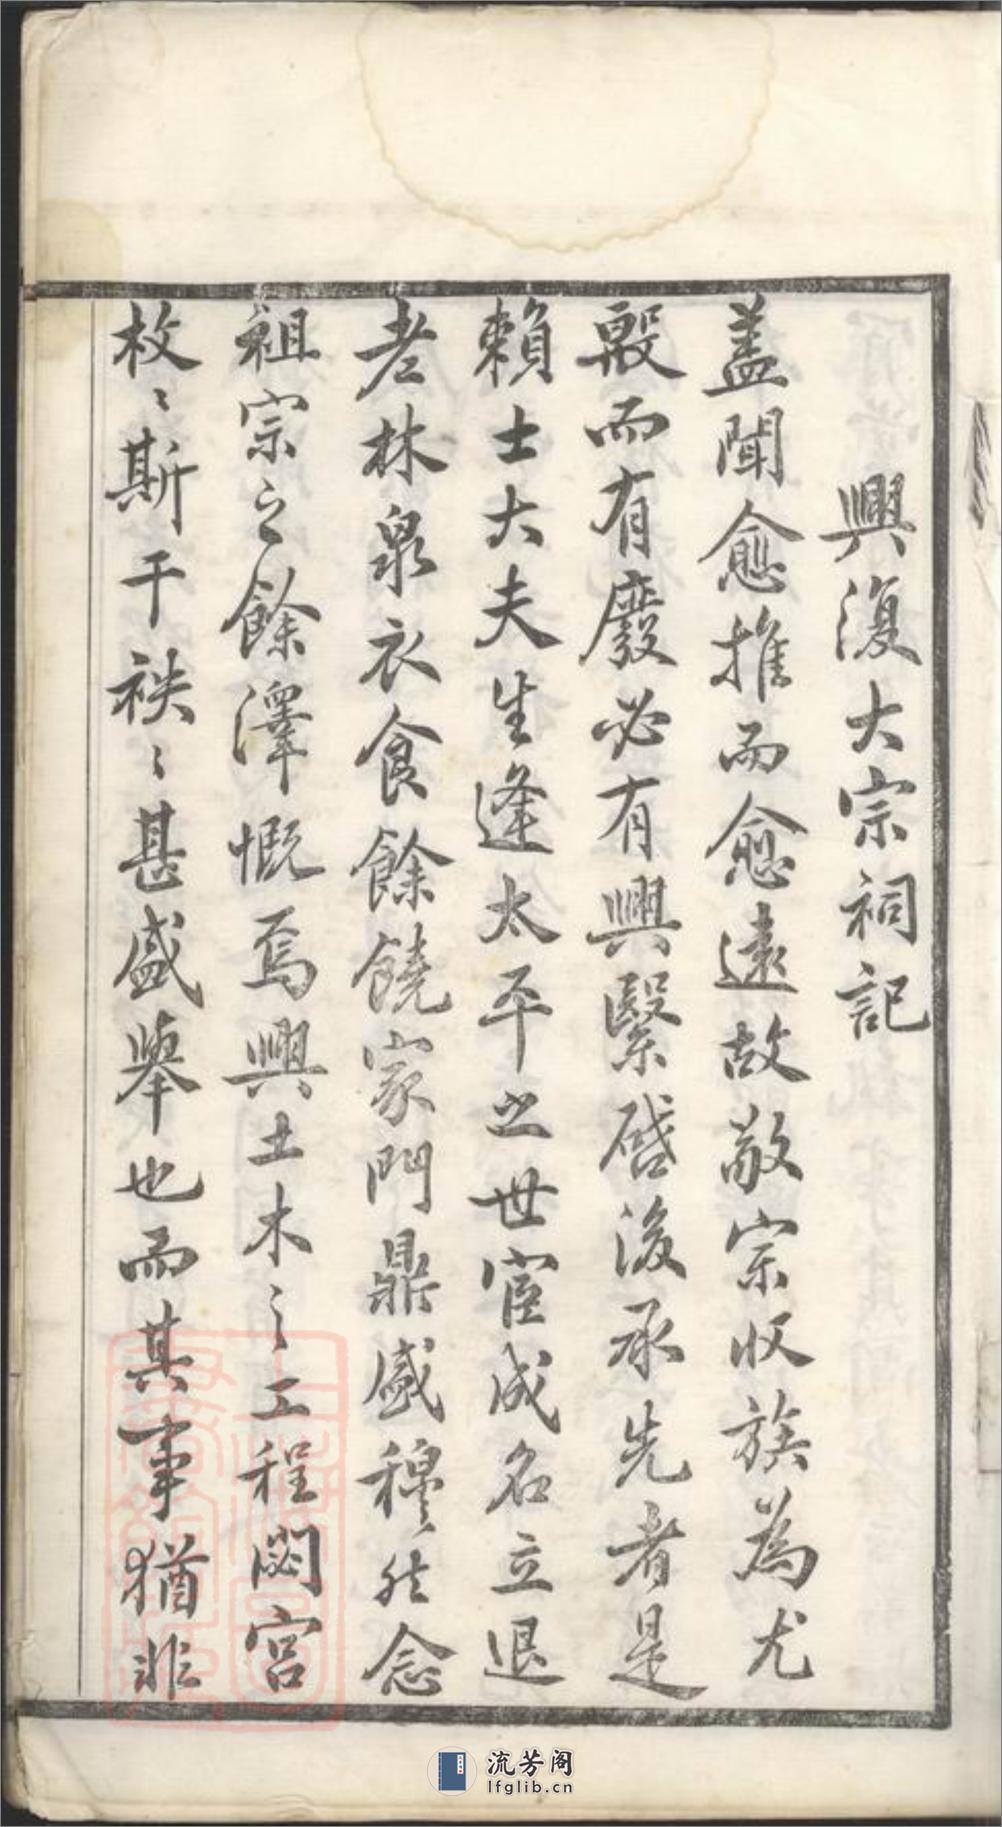 興復大宗祠記
蓋聞愈推而愈遠故敬宗收族為尤
殷而有廢必有興緊啓後承先者是
賴士大夫生逢太平之世宦成名立退
老林泉衣食餘饒家門鼎盛穆ミ然念
祖宗之餘澤慨焉興土木之工程閟宮
枚ミ斯干秩ミ甚盛舉也而其事猶非
流芳阁
lfglib.cn